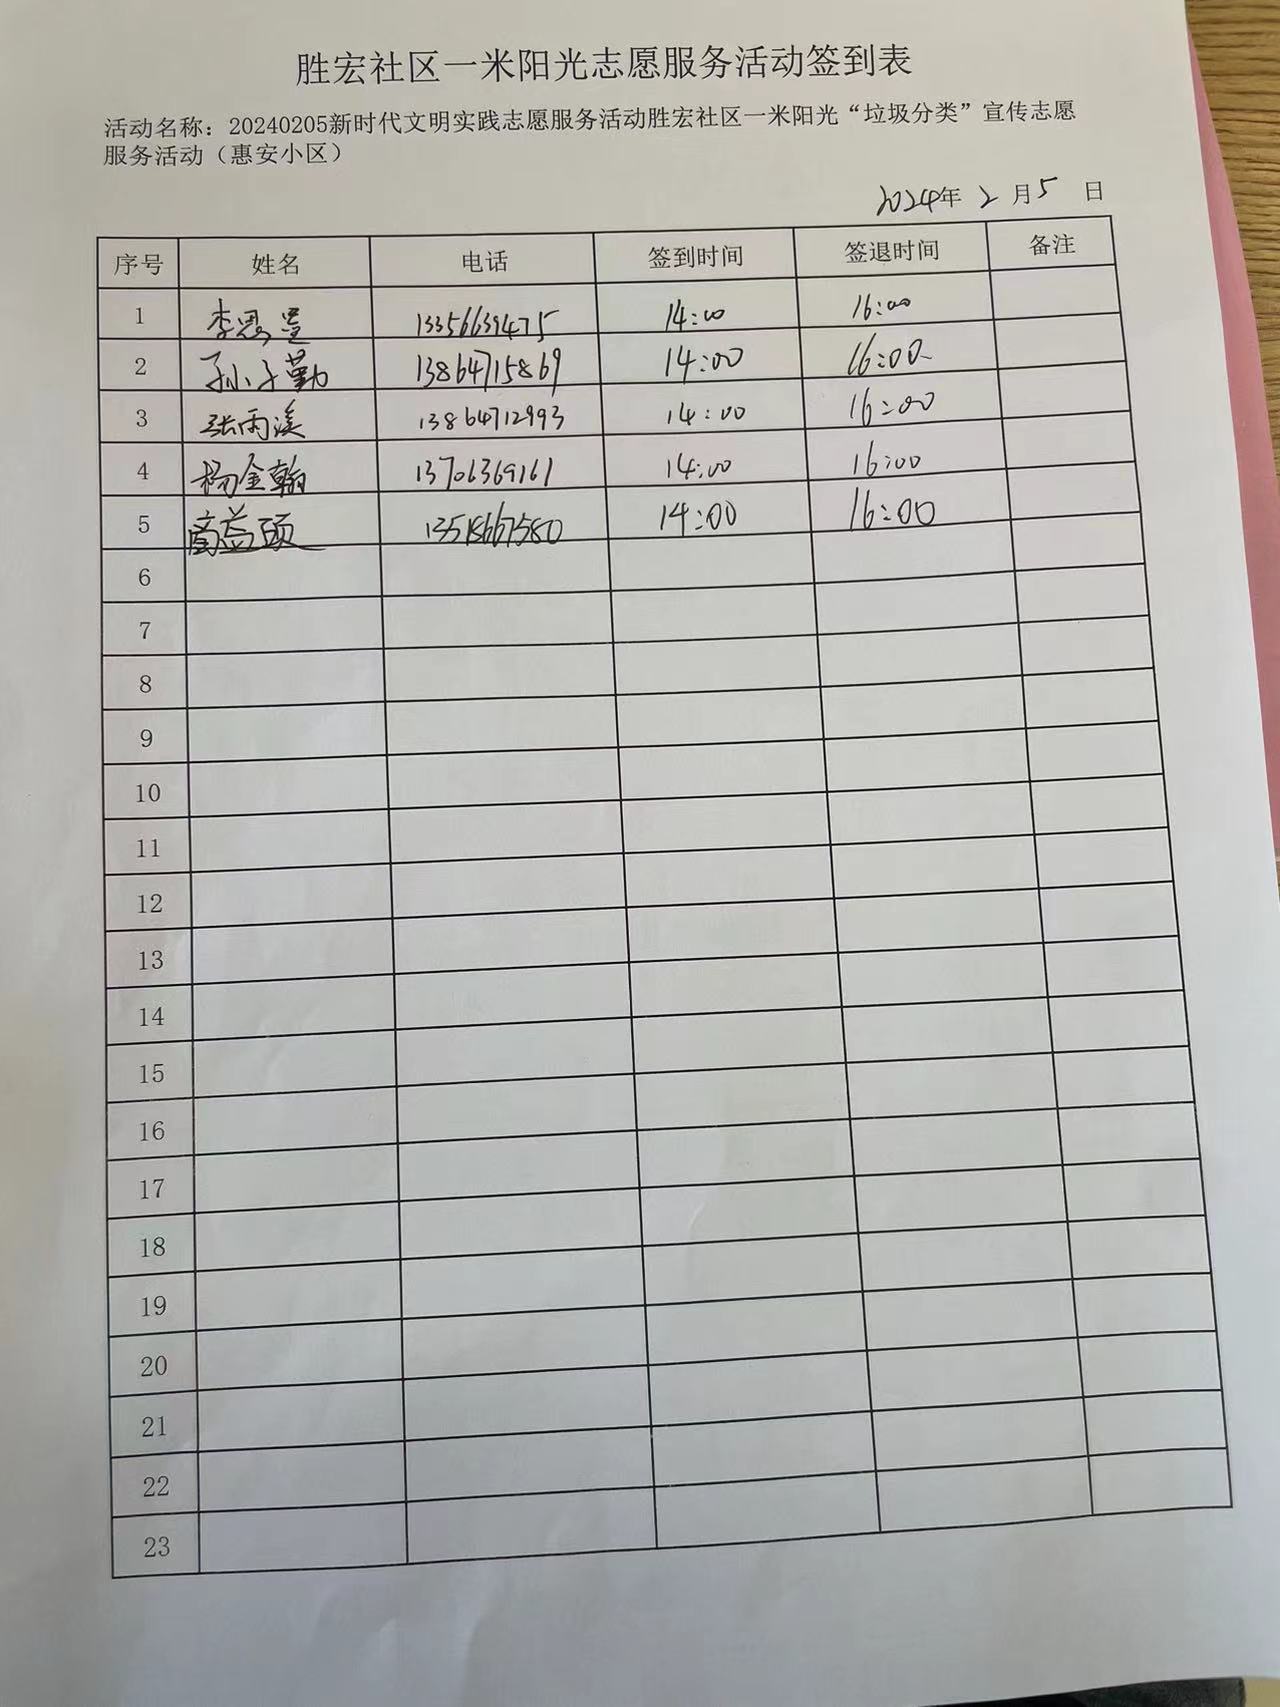 胜宏社区一米阳光志愿服务活动签到表
活动名称：20240205新时代文明实践志愿服务活动胜宏社区一米阳光“垃圾分类”宣传志愿
服务活动（惠安小区）
2024年 2 月 5 日
序号 姓名 电话 签到时间 签退时间 备注
1 李思萱 13356639475 14:00 16:00
2 孙子勤 13864715869 14:00 16:00
3 张雨溪 13864712993 14:00 16:00
4 杨金翰 13706369161 14:00 16:00
5 益硕 13518667580 14:00 16:00
6
7
8
9
10
11
12
13
14
15
16
17
18
19
20
21
22
23